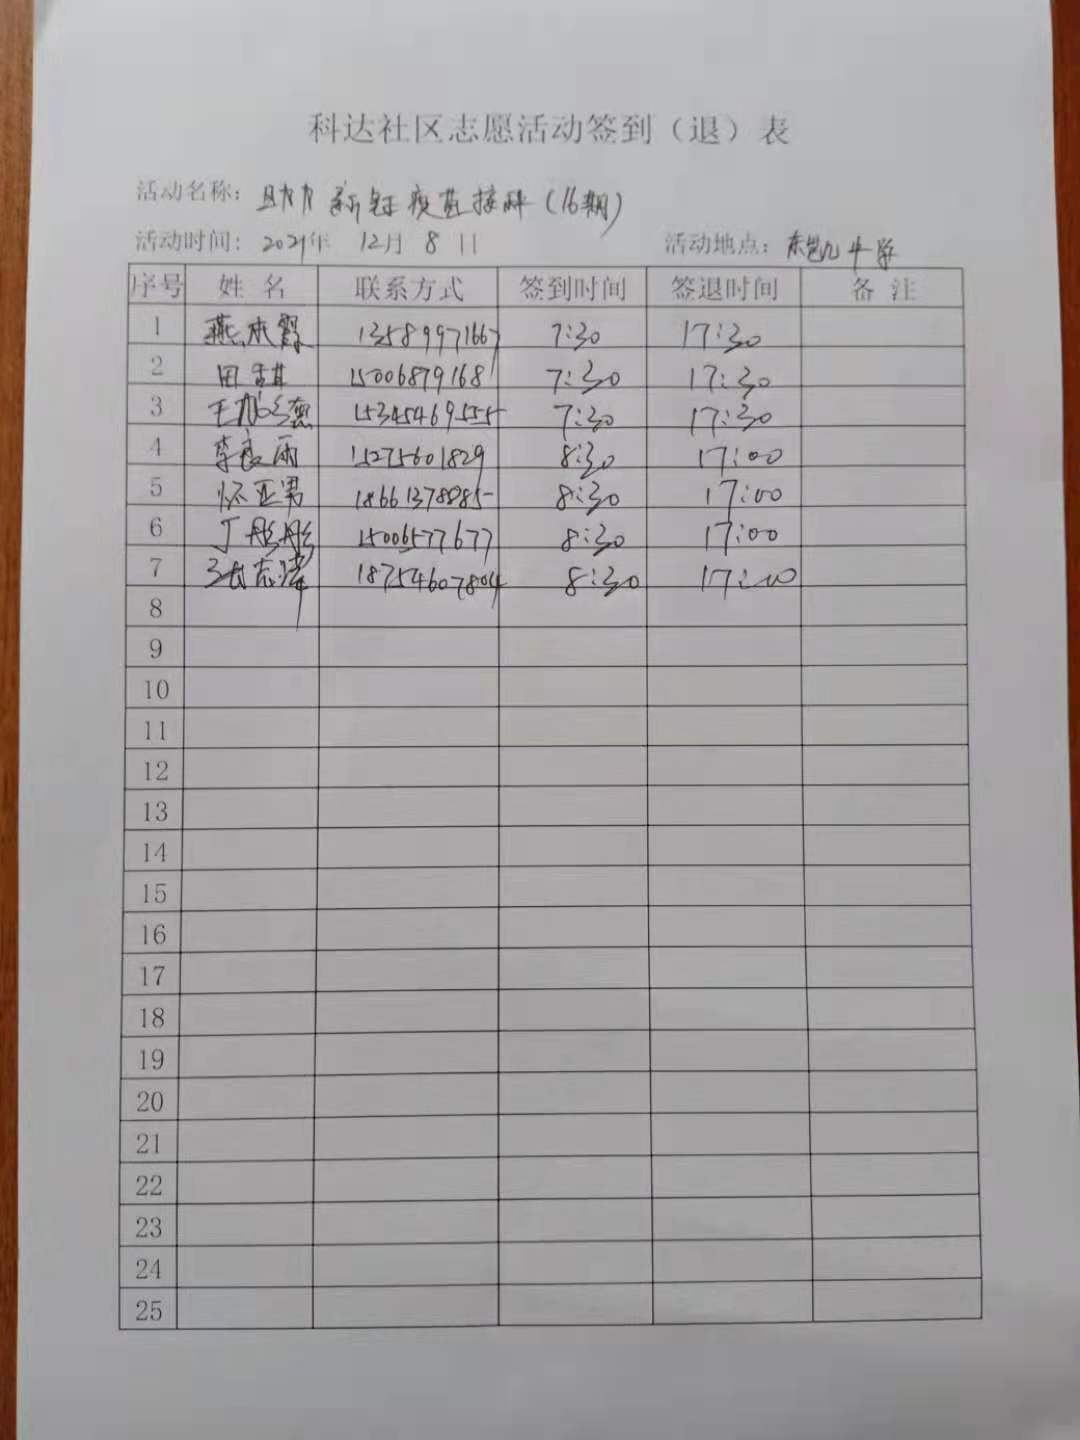 科达社区志愿活动签到（退）表
活动名称：助力新冠疫苗接种（16期）
活动时间：2021年 12月 8日 活动地点：东凯中学
序号 姓 名 联系方式 签到时间 签退时间 备 注
1 燕杰霞 13589971667 7:30 17:30
2 田甜 15006879168 7:30 17:30
3 15345469555 7:30 17:30
4 李良雨 15275601829 8:30 17:00
5 怀亚男 18661378885 8:30 17:00
6 丁彤彤 15006577677 8:30 17:00
7 18754607804 8:30 17:00
8
9
10
11
12
13
14
15
16
17
18
19
20
21
22
23
24
25